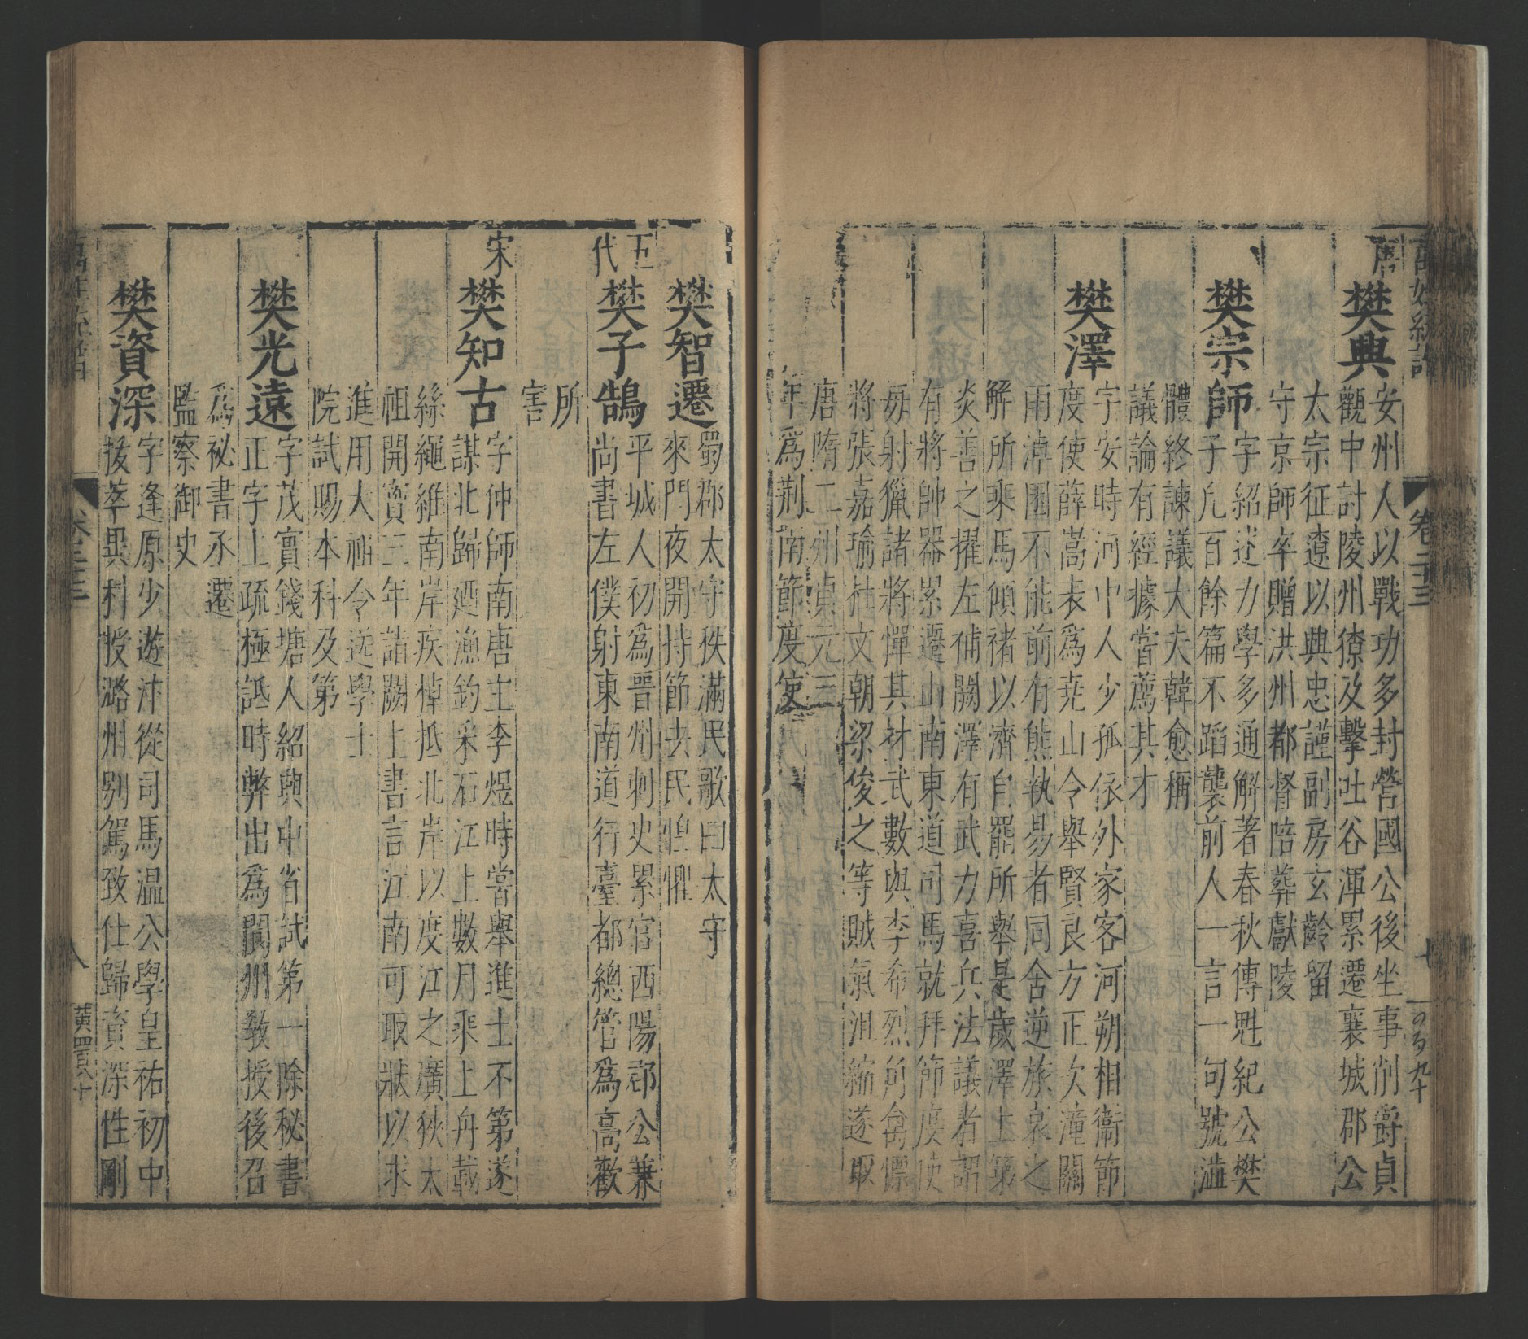 萬姓統譜
卷二十三
七
唐
樊興
安州人以戰功多封營國公後坐事削爵貞
觀中討陵州獠及擊吐谷渾累遷襄城郡公
太宗征遼以興忠謹副房玄齡留
守京師卒贈洪州都督陪葬獻陵
樊宗師
字紹述力學多通解著春秋傳魁紀公樊
子凢百餘篇不蹈襲前人一言一句號澁
體終諫議大夫韓愈稱
議論有經據嘗薦其才
樊澤
字安時河中人少孤依外家客河朔相衛節
度使薛嵩表爲堯山令舉賢良方正次潼關
雨淖困不能前有熊執易者同舍逆旅哀之
解所乘馬傾禇以濟自罷所舉是歲澤上第
炎善之擢左補闕澤有武力喜兵法議者謂
有將帥器累遷山南東道司馬就拜節度使
每射獵諸將憚其材武數與李希烈角禽僄
將張嘉瑜杜文朝梁俊之等賊氣沮縮遂取
唐隋二州貞元三
年爲荆南節度使
樊智遷
蜀郡太守秩滿民歌曰太守
來門夜開持節去民惶懼
五代
樊子鵠
平城人初爲晉州刺史累官西陽郡公兼
尚書左僕射東南道行臺都總管爲高歡
所
害
宋
樊知古
字仲師南唐主李煜時嘗舉進士不第遂
謀北歸廼漁釣采石江上數月乘上舟載
絲繩維南岸疾棹抵北岸以度江之廣狹太
祖開寶三年詣闕上書言江南可取狀以求
進用大補令送學士
院試賜本科及第
樊光遠
字茂實錢塘人紹興中省試第一除秘書
正字上疏極詆時弊出爲閬州敎授後召
爲祕書丞遷
監察御史
樊資深
字逢原少遊汴從司馬溫公學皇祐初中
後萃異科授潞州別駕致仕歸資深性剛
卷二十三
八